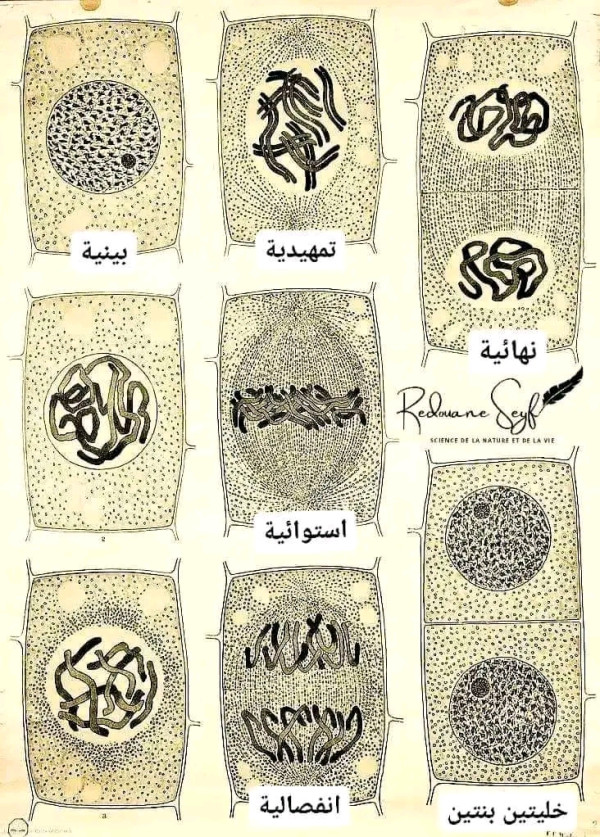 بينية
تمهيدية
نهائية
Redouane Seyf
SCIENCE DE LA NATURE ET DE LA VIE
2
استوائية
3
انفصالية
خليتين بنتين